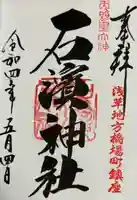 奉拝
浅草地方橋場町鎮座
石濱神社
令和四年五月四日